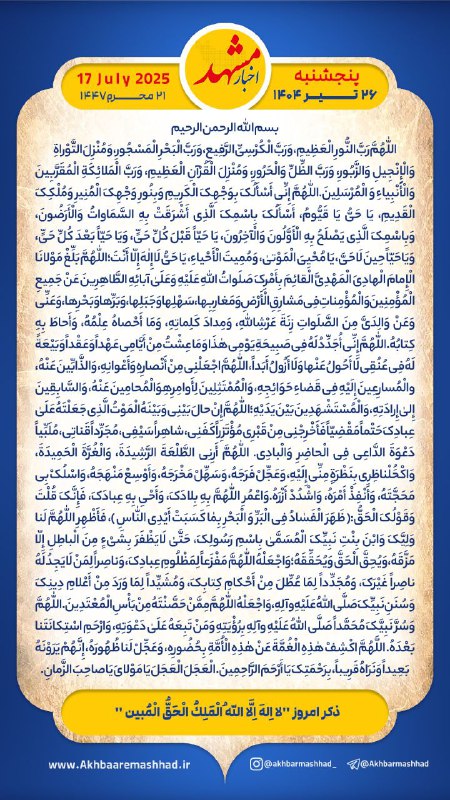 اخبار مشهد
پنجشنبه
۲۶ تیر ۱۴۰۴
17 July 2025
۲۱ محرم ۱۴۴۷
بسم الله الرحمن الرحیم
اَللّهُمَّ رَبَّ النُّورِ الْعَظِیمِ، وَرَبَّ الْکُرْسِیِّ الرَّفِیعِ، وَرَبَّ الْبَحْرِ الْمَسْجُورِ، وَمُنْزِلَ التَّوْراةِ
وَالْإِنْجِیلِ وَالزَّبُورِ، وَرَبَّ الظِّلِّ وَالْحَرُورِ، وَمُنْزِلَ الْقُرْآنِ الْعَظِیمِ، وَرَبَّ الْمَلائِکَةِ الْمُقَرَّبِینَ
وَالْأَنْبِیاءِ وَالْمُرْسَلِینَ. اللّهُمَّ إِنِّی أَسْأَلُکَ بِوَجْهِکَ الْکَرِیمِ وَبِنُورِ وَجْهِکَ الْمُنِیرِ وَمُلْکِکَ
الْقَدِیمِ، یَا حَیُّ یَا قَیُّومُ، أَسْأَلُکَ بِاسْمِکَ الَّذِی أَشْرَقَتْ بِهِ السَّمَاوَاتُ وَالْأَرَضُونَ،
وَبِاسْمِکَ الَّذِی یَصْلَحُ بِهِ الْأَوَّلُونَ وَالْآخِرُونَ، یَا حَیّاً قَبْلَ کُلِّ حَیٍّ، وَیَا حَیّاً بَعْدَ کُلِّ حَیٍّ،
وَیَا حَیّاً حِینَ لَاحَیَّ، یَا مُحْیِیَ الْمَوْتیٰ، وَمُمِیتَ الْأَحْیاءِ، یَا حَیُّ لَاإِلٰهَ إِلّا أَنْتَ؛ اللّهُمَّ بَلِّغْ مَوْلانَا
الْإِمامَ الْهادِیَ الْمَهْدِیَّ الْقائِمَ بِأَمْرِکَ صَلَواتُ اللّهِ عَلَیْهِ وَعَلَیٰ آبائِهِ الطّاهِرِینَ عَنْ جَمِیعِ
الْمُؤْمِنِینَ وَالْمُؤْمِناتِ فِی مَشارِقِ الْأَرْضِ وَمَغارِبِها، سَهْلِها وَجَبَلِها، وَبَرِّها وَبَحْرِها، وَعَنِّی
وَعَنْ وَالِدَیَّ مِنَ الصَّلَواتِ زِنَةَ عَرْشِ اللّهِ، وَمِدادَ کَلِماتِهِ، وَمَا أَحْصاهُ عِلْمُهُ، وَأَحاطَ بِهِ
کِتابُهُ. اللّهُمَّ إِنِّی أُجَدِّدُ لَهُ فِی صَبِیحَةِ یَوْمِی هٰذَا وَمَا عِشْتُ مِنْ أَیَّامِی عَهْداً وَعَقْداً وَبَیْعَةً
لَهُ فِی عُنُقِی لَا أَحُولُ عَنْها وَلَا أَزُولُ أَبَداً. اللّهُمَّ اجْعَلْنِی مِنْ أَنْصارِهِ وَأَعْوانِهِ، وَالذَّابِّینَ عَنْهُ،
وَالْمُسارِعِینَ إِلَیْهِ فِی قَضاءِ حَوَائِجِهِ، وَالْمُمْتَثِلِینَ لِأَوامِرِهِ وَالْمُحامِینَ عَنْهُ، وَالسَّابِقِینَ
إِلیٰ إِرادَتِهِ، وَالْمُسْتَشْهَدِینَ بَیْنَ یَدَیْهِ؛ اللّهُمَّ إِنْ حالَ بَیْنِی وَبَیْنَهُ الْمَوْتُ الَّذِی جَعَلْتَهُ عَلَیٰ
عِبادِکَ حَتْماً مَقْضِیّاً فَأَخْرِجْنِی مِنْ قَبْرِی مُؤْتَزِراً کَفَنِی، شاهِراً سَیْفِی، مُجَرِّداً قَناتِی، مُلَبِّیاً
دَعْوَةَ الدَّاعِی فِی الْحاضِرِ وَالْبادِی. اللّهُمَّ أَرِنِی الطَّلْعَةَ الرَّشِیدَةَ، وَالْغُرَّةَ الْحَمِیدَةَ،
وَاکْحُلْ ناظِرِی بِنَظْرَةٍ مِنِّی إِلَیْهِ، وَعَجِّلْ فَرَجَهُ، وَسَهِّلْ مَخْرَجَهُ، وَأَوْسِعْ مَنْهَجَهُ، وَاسْلُکْ بِی
مَحَجَّتَهُ، وَأَنْفِذْ أَمْرَهُ، وَاشْدُدْ أَزْرَهُ. وَاعْمُرِ اللّهُمَّ بِهِ بِلادَکَ، وَأَحْیِ بِهِ عِبادَکَ، فَإِنَّکَ قُلْتَ
وَقَوْلُکَ الْحَقُّ: ﴿ظَهَرَ الْفَسادُ فِی الْبَرِّ وَ الْبَحْرِ بِمَا کَسَبَتْ أَیْدِی النَّاسِ﴾، فَأَظْهِرِ اللّهُمَّ لَنا
وَلِیَّکَ وَابْنَ بِنْتِ نَبِیِّکَ الْمُسَمَّیٰ بِاسْمِ رَسُولِکَ، حَتَّیٰ لَا یَظْفَرَ بِشَیْءٍ مِنَ الْباطِلِ إِلّا
مَزَّقَهُ، وَیُحِقَّ الْحَقَّ وَیُحَقِّقَهُ؛ وَاجْعَلْهُ اللّهُمَّ مَفْزَعاً لِمَظْلُومِ عِبادِکَ، وَناصِراً لِمَنْ لَا یَجِدُ لَهُ
ناصِراً غَیْرَکَ، وَمُجَدِّداً لِمَا عُطِّلَ مِنْ أَحْکامِ کِتابِکَ، وَمُشَیِّداً لِمَا وَرَدَ مِنْ أَعْلامِ دِینِکَ
وَسُنَنِ نَبِیِّکَ صَلَّی اللّهُ عَلَیْهِ وَآلِهِ، وَاجْعَلْهُ اللّهُمَّ مِمَّنْ حَصَّنْتَهُ مِنْ بَأْسِ الْمُعْتَدِینَ. اللّهُمَّ
وَسُرَّ نَبِیَّکَ مُحَمَّداً صَلَّی اللّهُ عَلَیْهِ وَآلِهِ بِرُؤْیَتِهِ وَمَنْ تَبِعَهُ عَلَیٰ دَعْوَتِهِ، وَارْحَمِ اسْتِکانَتَنا
بَعْدَهُ. اللّهُمَّ اکْشِفْ هٰذِهِ الْغُمَّةَ عَنْ هٰذِهِ الْأُمَّةِ بِحُضُورِهِ، وَعَجِّلْ لَنا ظُهُورَهُ، إِنَّهُمْ یَرَوْنَهُ
بَعِیداً وَنَرَاهُ قَرِیباً، بِرَحْمَتِکَ یَا أَرْحَمَ الرَّاحِمِینَ. الْعَجَلَ الْعَجَلَ یَا مَوْلایَ یَا صاحِبَ الزَّمانِ.
ذکر امروز "لا اِلهَ اِلَّا اللّهُ الْمَلِکُ الْحَقُّ الْمُبین"
www.Akhbaaremashhad.ir
@akhbarmashhad_
@Akhbarmashhad